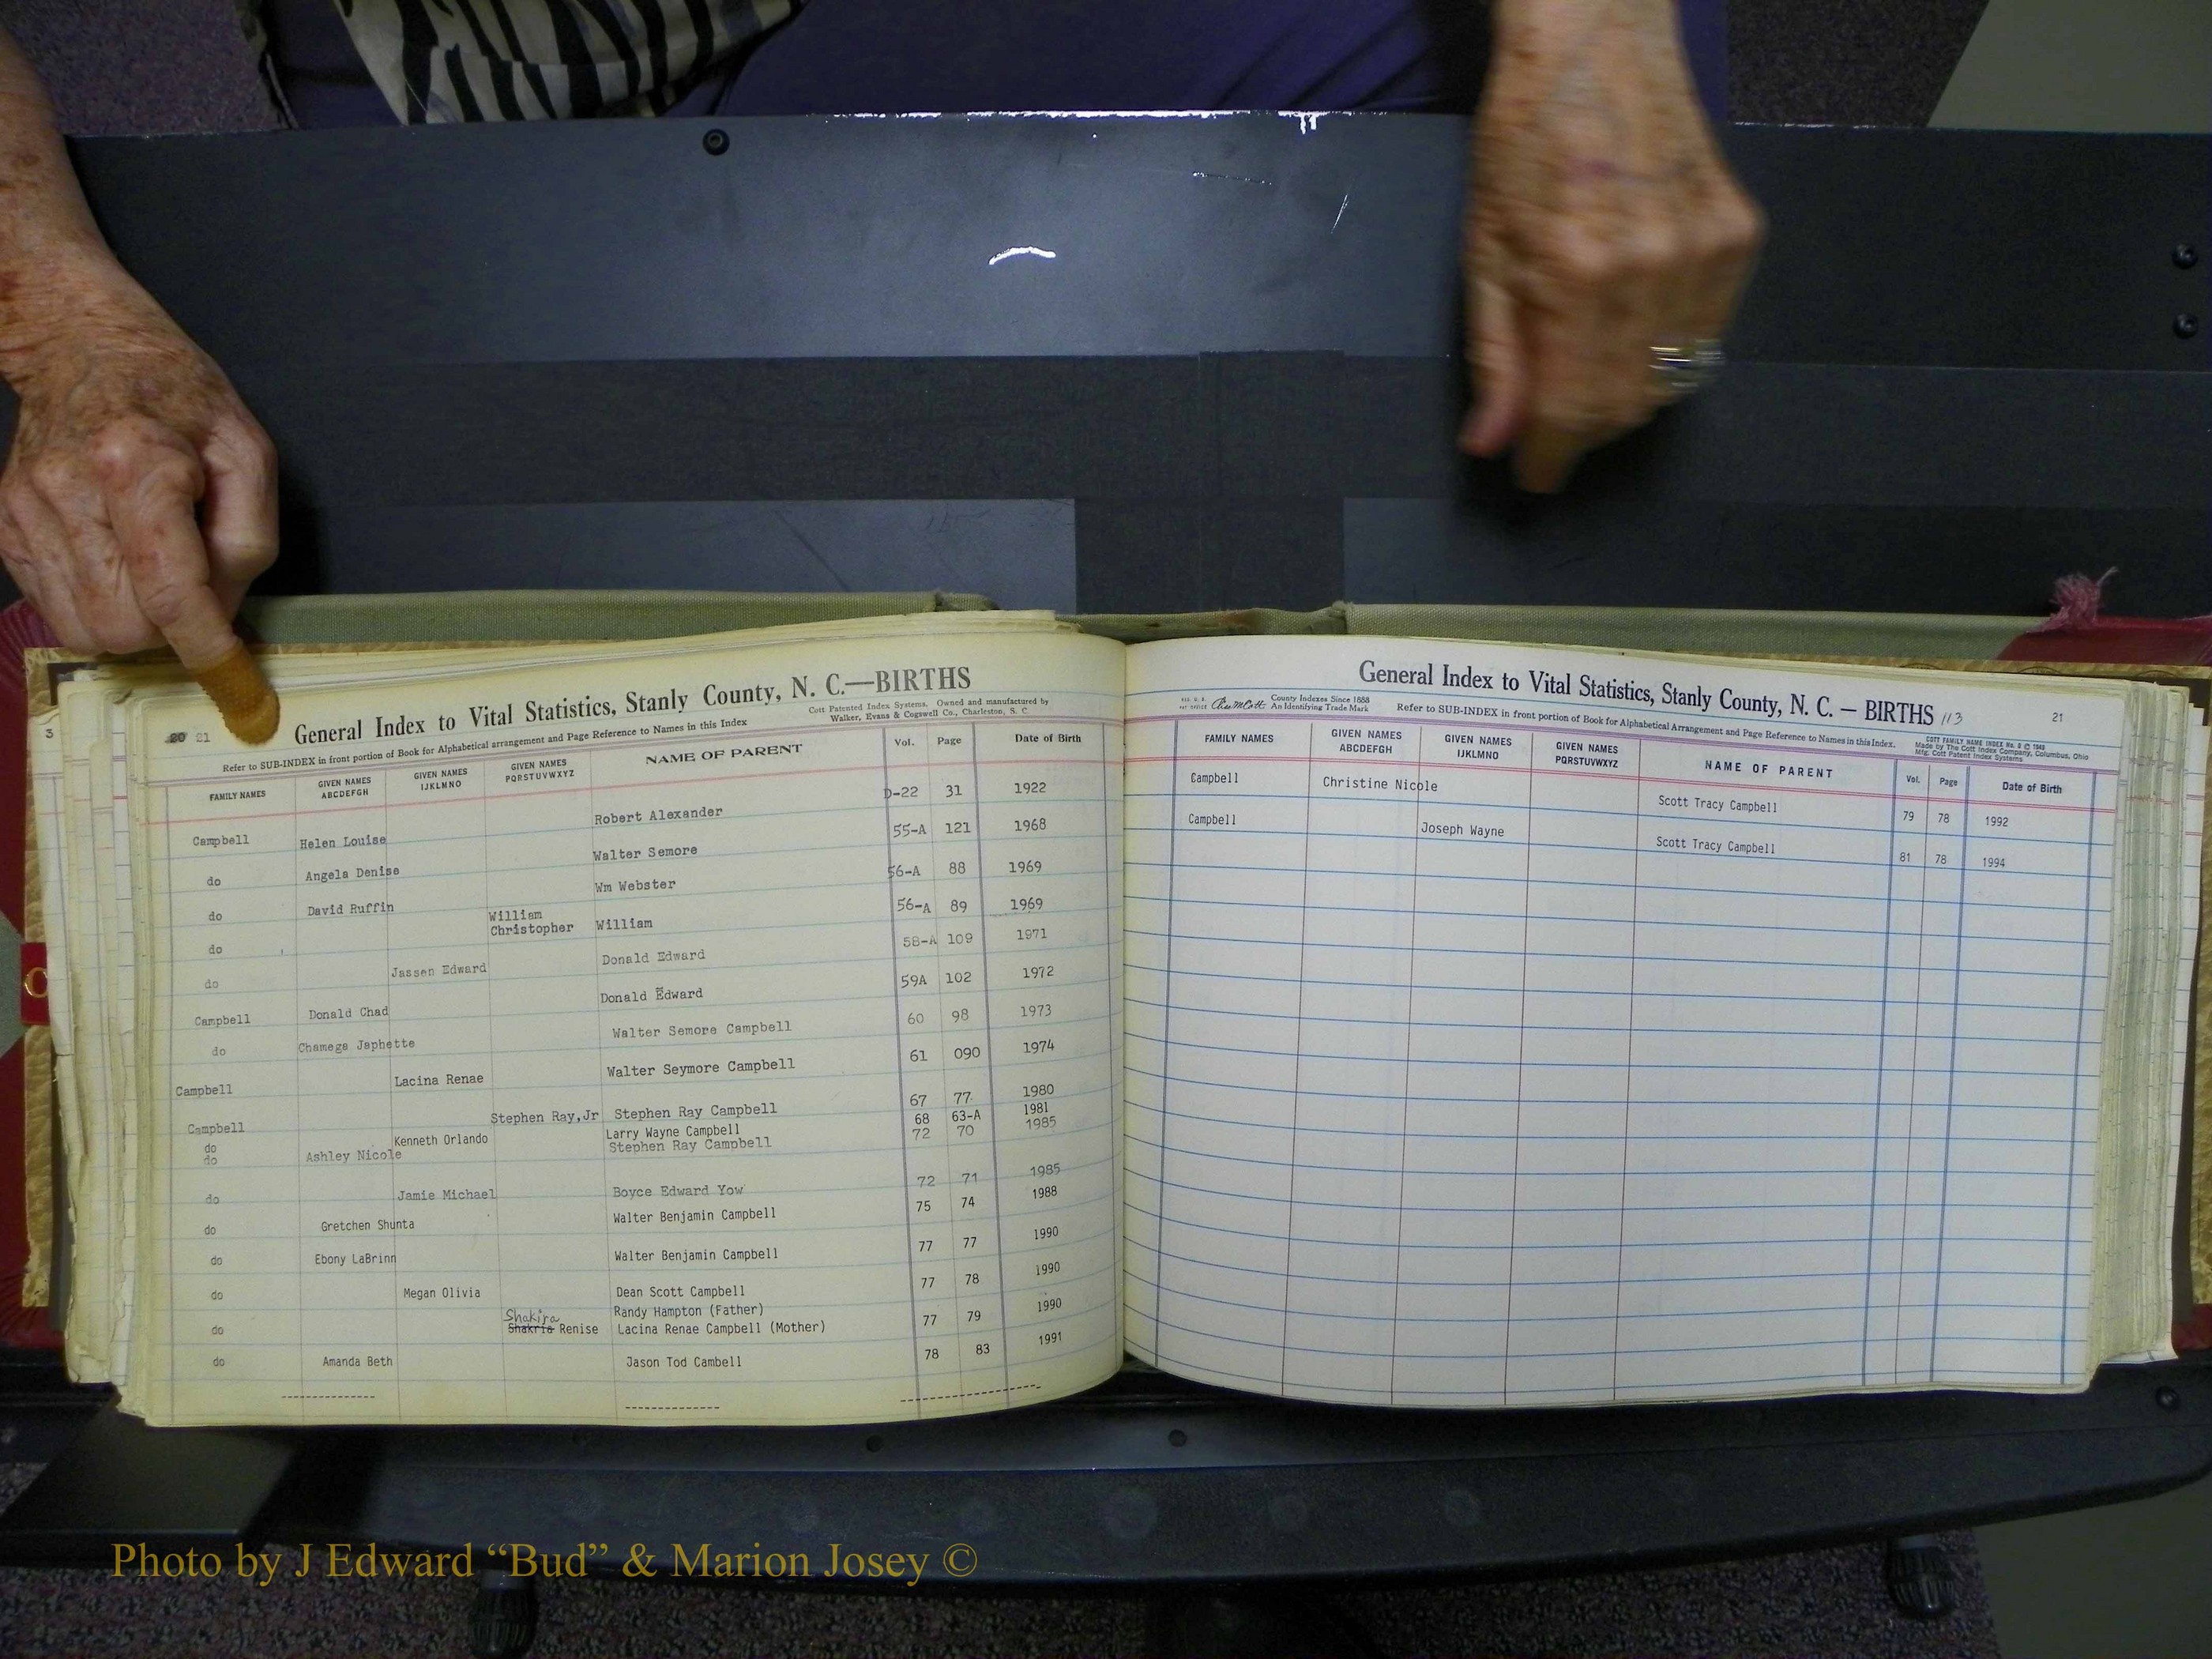 3
20 21
General Index to Vital Statistics, Stanly County, N. C.—BIRTHS
Cott Patented Index Systems, Owned and manufactured by
Walker, Evans & Cogswell Co., Charleston, S. C.
Refer to SUB-INDEX in front portion of Book for Alphabetical arrangement and Page Reference to Names in this Index
FAMILY NAMES GIVEN NAMES ABCDEFGH GIVEN NAMES IJKLMNO GIVEN NAMES PQRSTUVWXYZ NAME OF PARENT Vol. Page Date of Birth
Campbell Helen Louise Robert Alexander D-22 31 1922
do Angela Denise Walter Semore 55-A 121 1968
do David Ruffin Wm Webster 56-A 88 1969
do William Christopher William 56-A 89 1969
do Jassen Edward Donald Edward 58-A 109 1971
Campbell Donald Chad Donald Edward 59A 102 1972
do Chamega Japhette Walter Semore Campbell 60 98 1973
Campbell Lacina Renae Walter Seymore Campbell 61 090 1974
Campbell Stephen Ray,Jr Stephen Ray Campbell 67 77 1980
do Kenneth Orlando Larry Wayne Campbell 68 63-A 1981
do Ashley Nicole Stephen Ray Campbell 72 70 1985
do Jamie Michael Boyce Edward Yow 72 71 1985
do Gretchen Shunta Walter Benjamin Campbell 75 74 1988
do Ebony LaBrinn Walter Benjamin Campbell 77 77 1990
do Megan Olivia Dean Scott Campbell 77 78 1990
Shakira Randy Hampton (Father)
do Shakria Renise Lacina Renae Campbell (Mother) 77 79 1990
do Amanda Beth Jason Tod Cambell 78 83 1991
General Index to Vital Statistics, Stanly County, N. C. — BIRTHS 113
21
County Indexes Since 1888
An Identifying Trade Mark
Refer to SUB-INDEX in front portion of Book for Alphabetical Arrangement and Page Reference to Names in this Index.
COTT FAMILY NAME INDEX No. 8 © 1949
Made by The Cott Index Company, Columbus, Ohio
Mfg. Cott Patent Index Systems
FAMILY NAMES GIVEN NAMES ABCDEFGH GIVEN NAMES IJKLMNO GIVEN NAMES PQRSTUVWXYZ NAME OF PARENT Vol. Page Date of Birth
Campbell Christine Nicole Scott Tracy Campbell 79 78 1992
Campbell Joseph Wayne Scott Tracy Campbell 81 78 1994
Photo by J Edward “Bud” & Marion Josey ©